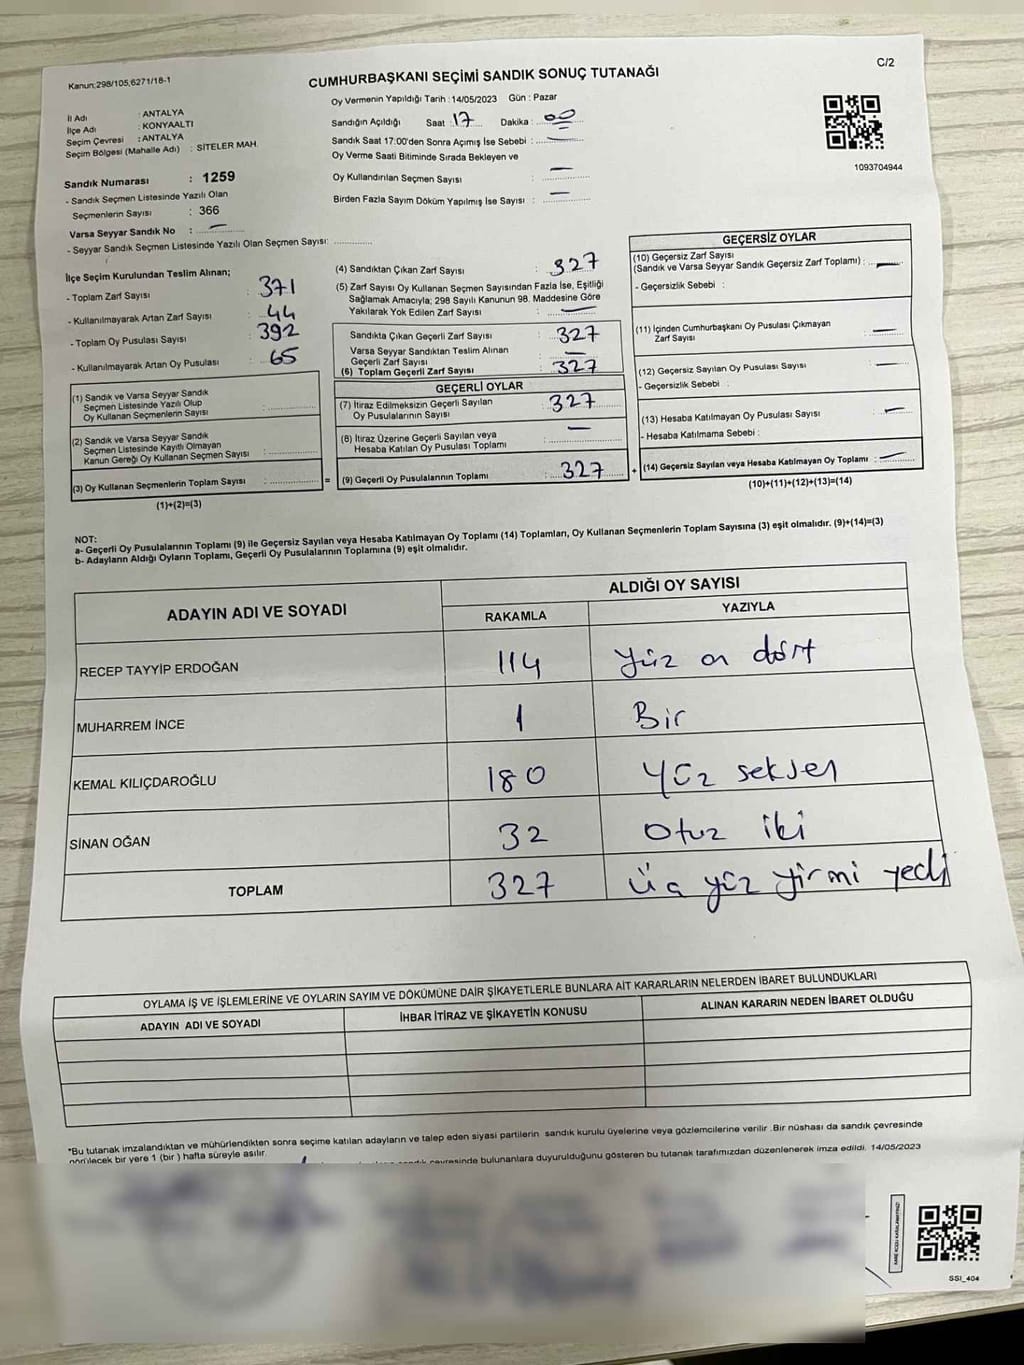 Kanun:298/105,6271/18-1
C/2
CUMHURBAŞKANI SEÇİMİ SANDIK SONUÇ TUTANAĞI
Oy Vermenin Yapıldığı Tarih : 14/05/2023 Gün : Pazar
İl Adı : ANTALYA
İlçe Adı : KONYAALTI
Seçim Çevresi : ANTALYA
Seçim Bölgesi (Mahalle Adı) : SİTELER MAH.
Sandığın Açıldığı Saat : 17 Dakika : 00
Sandık Saat 17:00'den Sonra Açımış İse Sebebi : —
Oy Verme Saati Bitiminde Sırada Bekleyen ve
Oy Kullandırılan Seçmen Sayısı : —
Birden Fazla Sayım Döküm Yapılmış İse Sayısı : —
1093704944
Sandık Numarası : 1259
- Sandık Seçmen Listesinde Yazılı Olan
Seçmenlerin Sayısı : 366
Varsa Seyyar Sandık No : —
- Seyyar Sandık Seçmen Listesinde Yazılı Olan Seçmen Sayısı: ............
İlçe Seçim Kurulundan Teslim Alınan;
- Toplam Zarf Sayısı : 371
- Kullanılmayarak Artan Zarf Sayısı : 44
- Toplam Oy Pusulası Sayısı : 392
- Kullanılmayarak Artan Oy Pusulası : 65
(1) Sandık ve Varsa Seyyar Sandık
Seçmen Listesinde Yazılı Olup
Oy Kullanan Seçmenlerin Sayısı : ............
(2) Sandık ve Varsa Seyyar Sandık
Seçmen Listesinde Kayıtlı Olmayan
Kanun Gereği Oy Kullanan Seçmen Sayısı : ............
(3) Oy Kullanan Seçmenlerin Toplam Sayısı : ............ =
(1)+(2)=(3)
(4) Sandıktan Çıkan Zarf Sayısı : 327
(5) Zarf Sayısı Oy Kullanan Seçmen Sayısından Fazla İse, Eşitliği
Sağlamak Amacıyla; 298 Sayılı Kanunun 98. Maddesine Göre
Yakılarak Yok Edilen Zarf Sayısı : —
Sandıkta Çıkan Geçerli Zarf Sayısı : 327
Varsa Seyyar Sandıktan Teslim Alınan
Geçerli Zarf Sayısı : —
(6) Toplam Geçerli Zarf Sayısı : 327
GEÇERLİ OYLAR
(7) İtiraz Edilmeksizin Geçerli Sayılan
Oy Pusulalarının Sayısı : 327
(8) İtiraz Üzerine Geçerli Sayılan veya
Hesaba Katılan Oy Pusulası Toplamı : —
(9) Geçerli Oy Pusulalarının Toplamı : 327 +
GEÇERSİZ OYLAR
(10) Geçersiz Zarf Sayısı
(Sandık ve Varsa Seyyar Sandık Geçersiz Zarf Toplamı) : —
- Geçersizlik Sebebi :
(11) İçinden Cumhurbaşkanı Oy Pusulası Çıkmayan
Zarf Sayısı : —
(12) Geçersiz Sayılan Oy Pusulası Sayısı : —
- Geçersizlik Sebebi :
(13) Hesaba Katılmayan Oy Pusulası Sayısı : —
- Hesaba Katılmama Sebebi :
(14) Geçersiz Sayılan veya Hesaba Katılmayan Oy Toplamı : —
(10)+(11)+(12)+(13)=(14)
NOT:
a- Geçerli Oy Pusulalarının Toplamı (9) ile Geçersiz Sayılan veya Hesaba Katılmayan Oy Toplamı (14) Toplamları, Oy Kullanan Seçmenlerin Toplam Sayısına (3) eşit olmalıdır. (9)+(14)=(3)
b- Adayların Aldığı Oyların Toplamı, Geçerli Oy Pusulalarının Toplamına (9) eşit olmalıdır.
ADAYIN ADI VE SOYADI
ALDIĞI OY SAYISI
RAKAMLA YAZIYLA
RECEP TAYYİP ERDOĞAN 114 Yüz on dört
MUHARREM İNCE 1 Bir
KEMAL KILIÇDAROĞLU 180 Yüz seksen
SİNAN OĞAN 32 Otuz iki
TOPLAM 327 Üç yüz yirmi yedi
OYLAMA İŞ VE İŞLEMLERİNE VE OYLARIN SAYIM VE DÖKÜMÜNE DAİR ŞİKAYETLERLE BUNLARA AİT KARARLARIN NELERDEN İBARET BULUNDUKLARI
ADAYIN ADI VE SOYADI İHBAR İTİRAZ VE ŞİKAYETİN KONUSU ALINAN KARARIN NEDEN İBARET OLDUĞU
*Bu tutanak imzalandıktan ve mühürlendikten sonra seçime katılan adayların ve talep eden siyasi partilerin sandık kurulu üyelerine veya gözlemcilerine verilir .Bir nüshası da sandık çevresinde
görülecek bir yere 1 (bir ) hafta süreyle asılır.
sandık çevresinde bulunanlara duyurulduğunu gösteren bu tutanak tarafımızdan düzenlenerek imza edildi. 14/05/2023
SSI_404